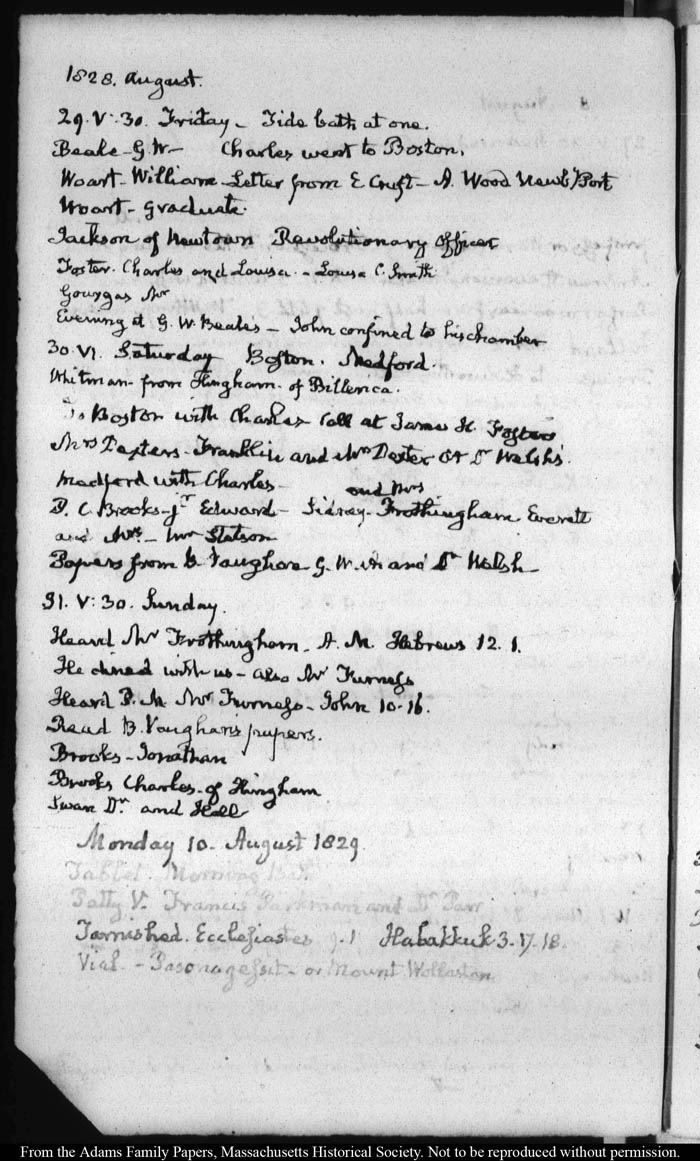 1828. August.
29. V:30. Friday – Tide bath at one.
Beale – G. W – Charles went to Boston.
Woart – William – Letter from E Cruft – A. Wood Newb'Port
Woart – graduate.
Jackson of Newtown Revolutionary Officer
Foster. Charles and Louisa. – Louisa C. Smith
Gourgas Mr
Evening at G. W. Beales – John confined to his chamber
30. VI. Saturday Boston. Medford.
Whitman – from Hingham – of Billerica.
To Boston with Charles Call at James H. Fosters
Mrs Dexters – Franklin and Mrs Dexter at Dr Welsh's.
Medford with Charles –
P. C. Brooks – Jr Edward – Sidney – Frothingham and Mrs Everett
and Mrs – Mr Stetson
Papers from B Vaughan G. W. A and Dr Welsh –
31. V:30. Sunday.
Heard Mr Frothingham – A. M. Hebrews 12. 1.
He dined with us – also Mr Furness
Heard P. M. Mr Furness – John 10–16.
Read B. Vaughan's papers.
Brooks – Jonathan
Brooks Charles – of Hingham
Swan Dr. and Hall
Monday 10. August 1829.
Tablet. Morning
Patty V. Francis Parkman and Dr Parr
Tarnished. Ecclesiastes 9.1 Habakkuk 3.17.18.
Vial. – – or Mount Wollaston
From the Adams Family Papers, Massachusetts Historical Society. Not to be reproduced without permission.